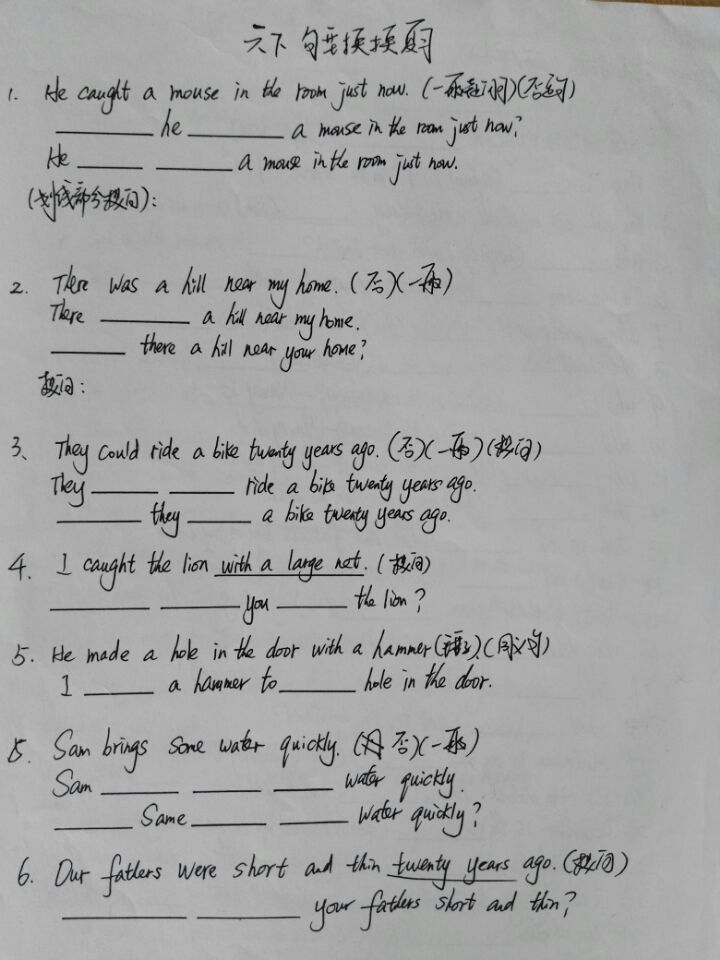 六下 句型转换复习
1. He caught a mouse in the room just now. (一般疑问句)(否定句)
______ he ______ a mouse in the room just now?
He ______ ______ a mouse in the room just now.
(划线部分提问):
2. There was a hill near my home. (否)(一般)
There ______ a hill near my home.
______ there a hill near your home?
提问:
3、They could ride a bike twenty years ago. (否)(一般)(提问)
They ______ ______ ride a bike twenty years ago.
______ they ______ a bike twenty years ago.
4. I caught the lion with a large net. (提问)
______ ______ you ______ the lion?
5. He made a hole in the door with a hammer (同义句)
I ______ a hammer to ______ hole in the door.
5. Sam brings some water quickly. (否)(一般)
Sam ______ ______ ______ water quickly.
______ Same ______ ______ water quickly?
6. Our fathers were short and thin twenty years ago. (提问)
______ ______ your fathers short and thin?